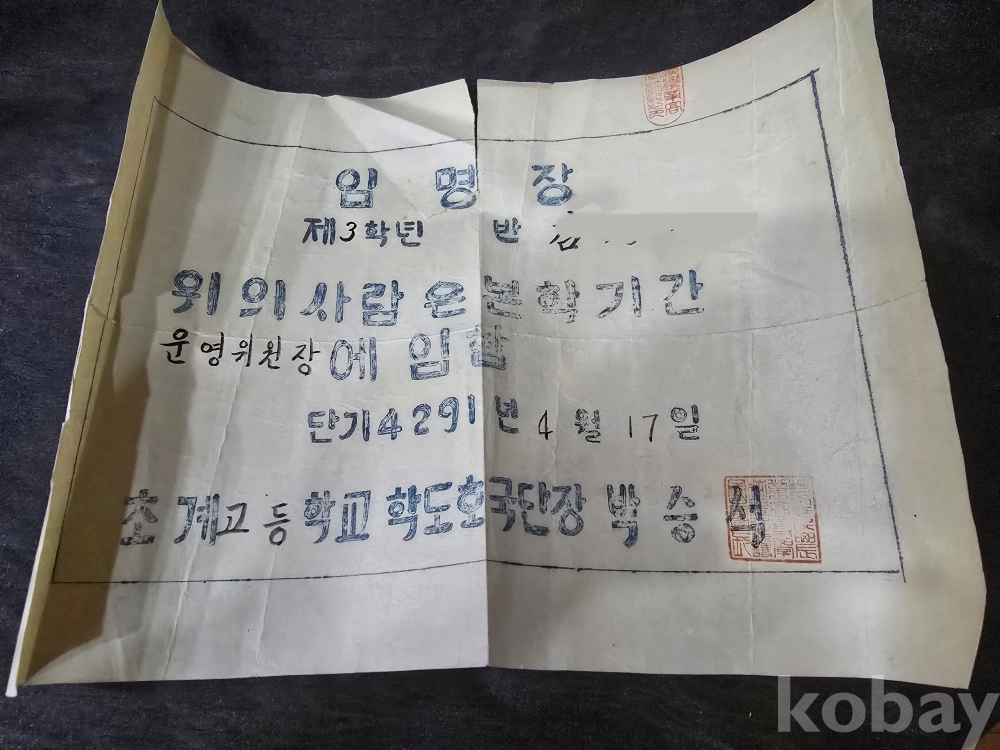 임명장
제3학년 반 김
위의사람은본학기간
운영위원장에 임함
단기4291년 4월 17일
초계고등학교 학도호국단장 박승적
kobay